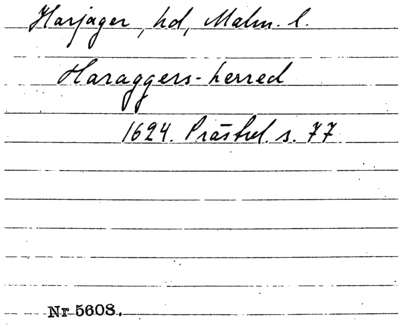 Harjager, hd, Malm. l.
Haraggers-herred
1624. Prästrel. s. 77
Nr 5608.